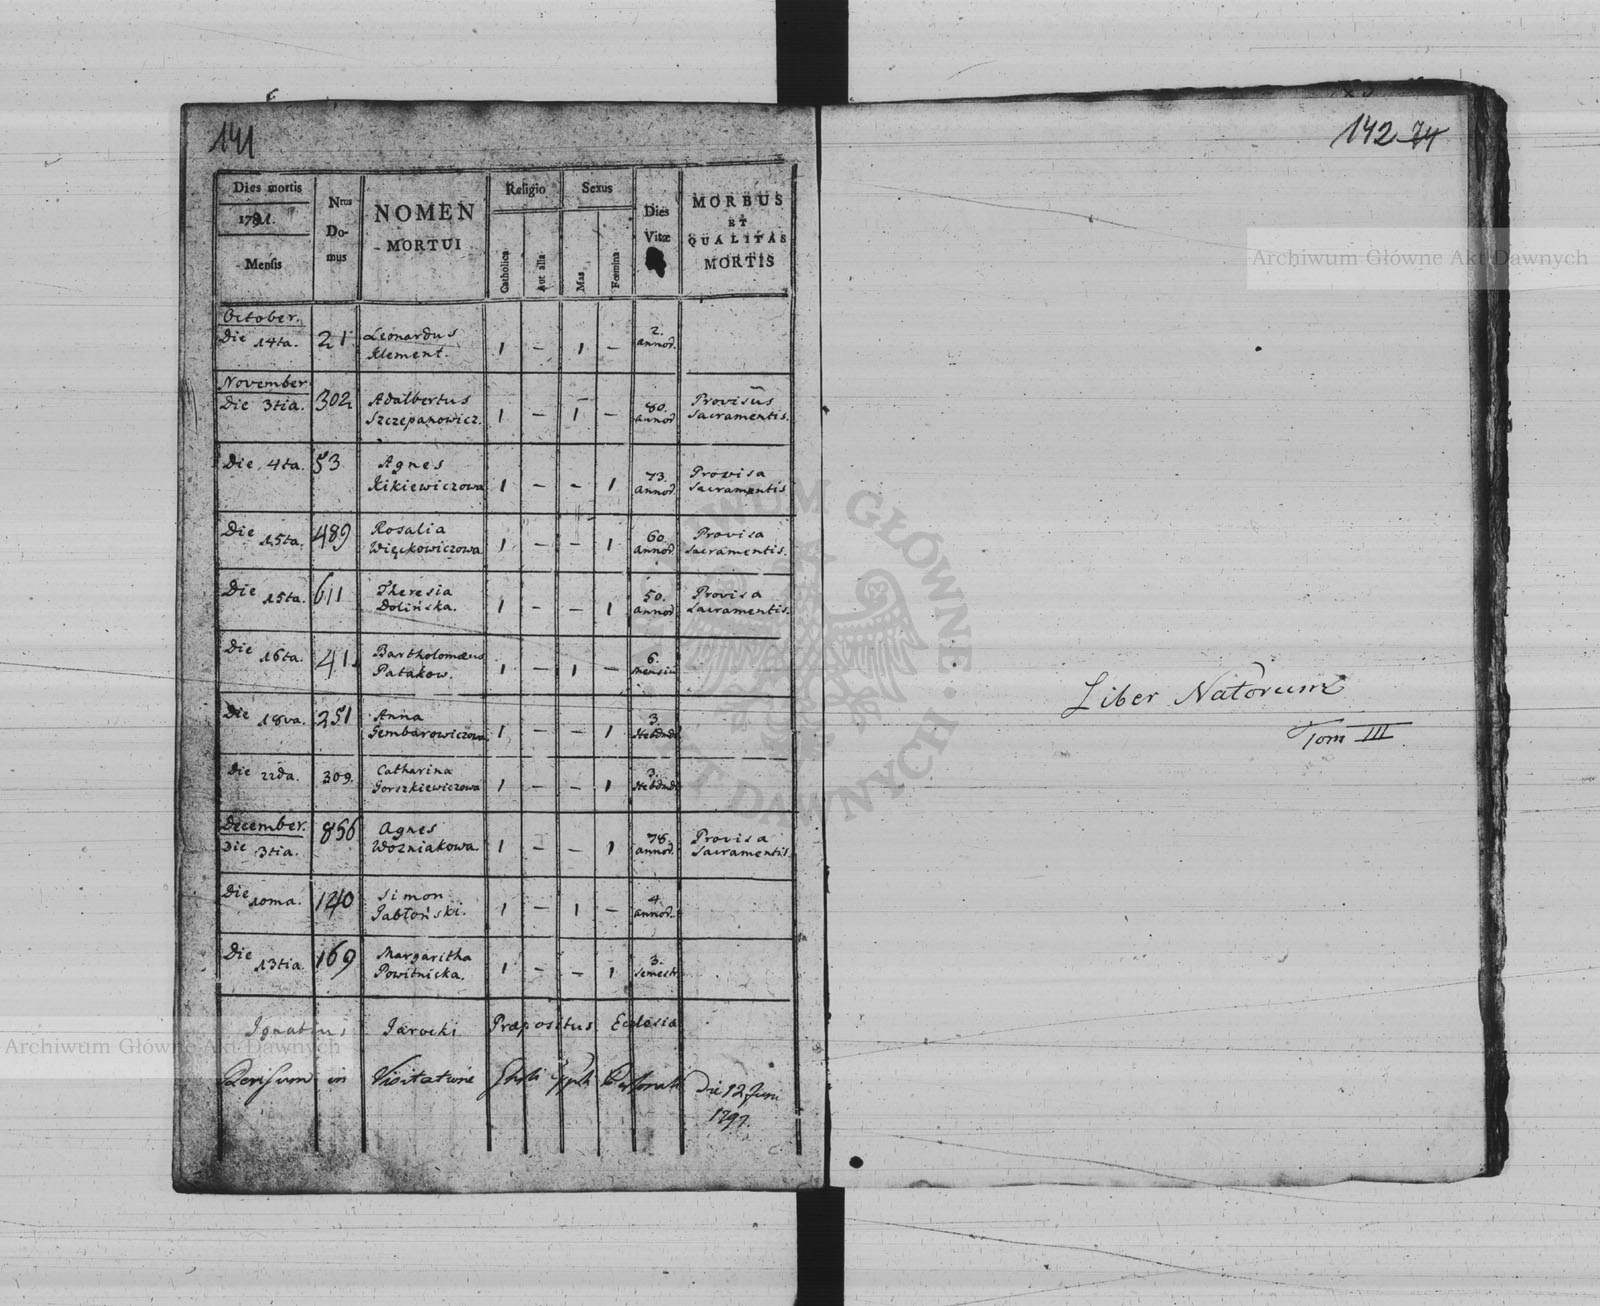 141
Dies mortis
1791.
Mensis
Nrus
Do-
mus
NOMEN
MORTUI
Religio
Catholica
Aut alia
Sexus
Mas
Foemina
Dies
Vitæ
MORBUS
ET
QUALITAS
MORTIS
October.
Die 14ta. 21 Leonardus
Klement. 1 – 1 – 2. annor.
November
Die 3tia. 302 Adalbertus Provisus
Szczepanowicz. 1 – 1 – 80. annor Sacramentis.
Die 4ta. 53 Agnes Provisa
Kikiewiczowa 1 – – 1 73. annor. Sacramentis
Die 15ta. 489 Rosalia Provisa
Więckowiczowa 1 – – 1 60. annor. Sacramentis.
Die 15ta. 611 Theresia Provisa
Dolińska. 1 – – 1 50. annor. Sacramentis.
Die 16ta. 41. Bartholomæus
Patakow. 1 – 1 – 6. mensiu
Die 18va. 251 Anna
Gembarowiczowa 1 – – 1 3. Hebdnd
Die 22da. 309. Catharina
Gorszkiewiczowa 1 – – 1 3. Hebdnd
December.
Die 3tia. 856 Agnes Provisa
Wozniakowa. 1 – – 1 78. annor. Sacramentis
Die 10ma. 140 Simon
Jabłoński. 1 – 1 – 4 annor.
Die 13tia. 169 Margaritha
Powitnicka. 1 – – 1 3. Semestr
Ignatius Jarocki Præpositus Ecclesiæ
in Visitatione Die 12 Juni
1797.
142 74
Liber Natorum
Tom III
Archiwum Główne Akt Dawnych
Archiwum Główne Akt Dawnych
ARCHIWUM GŁÓWNE AKT DAWNYCH